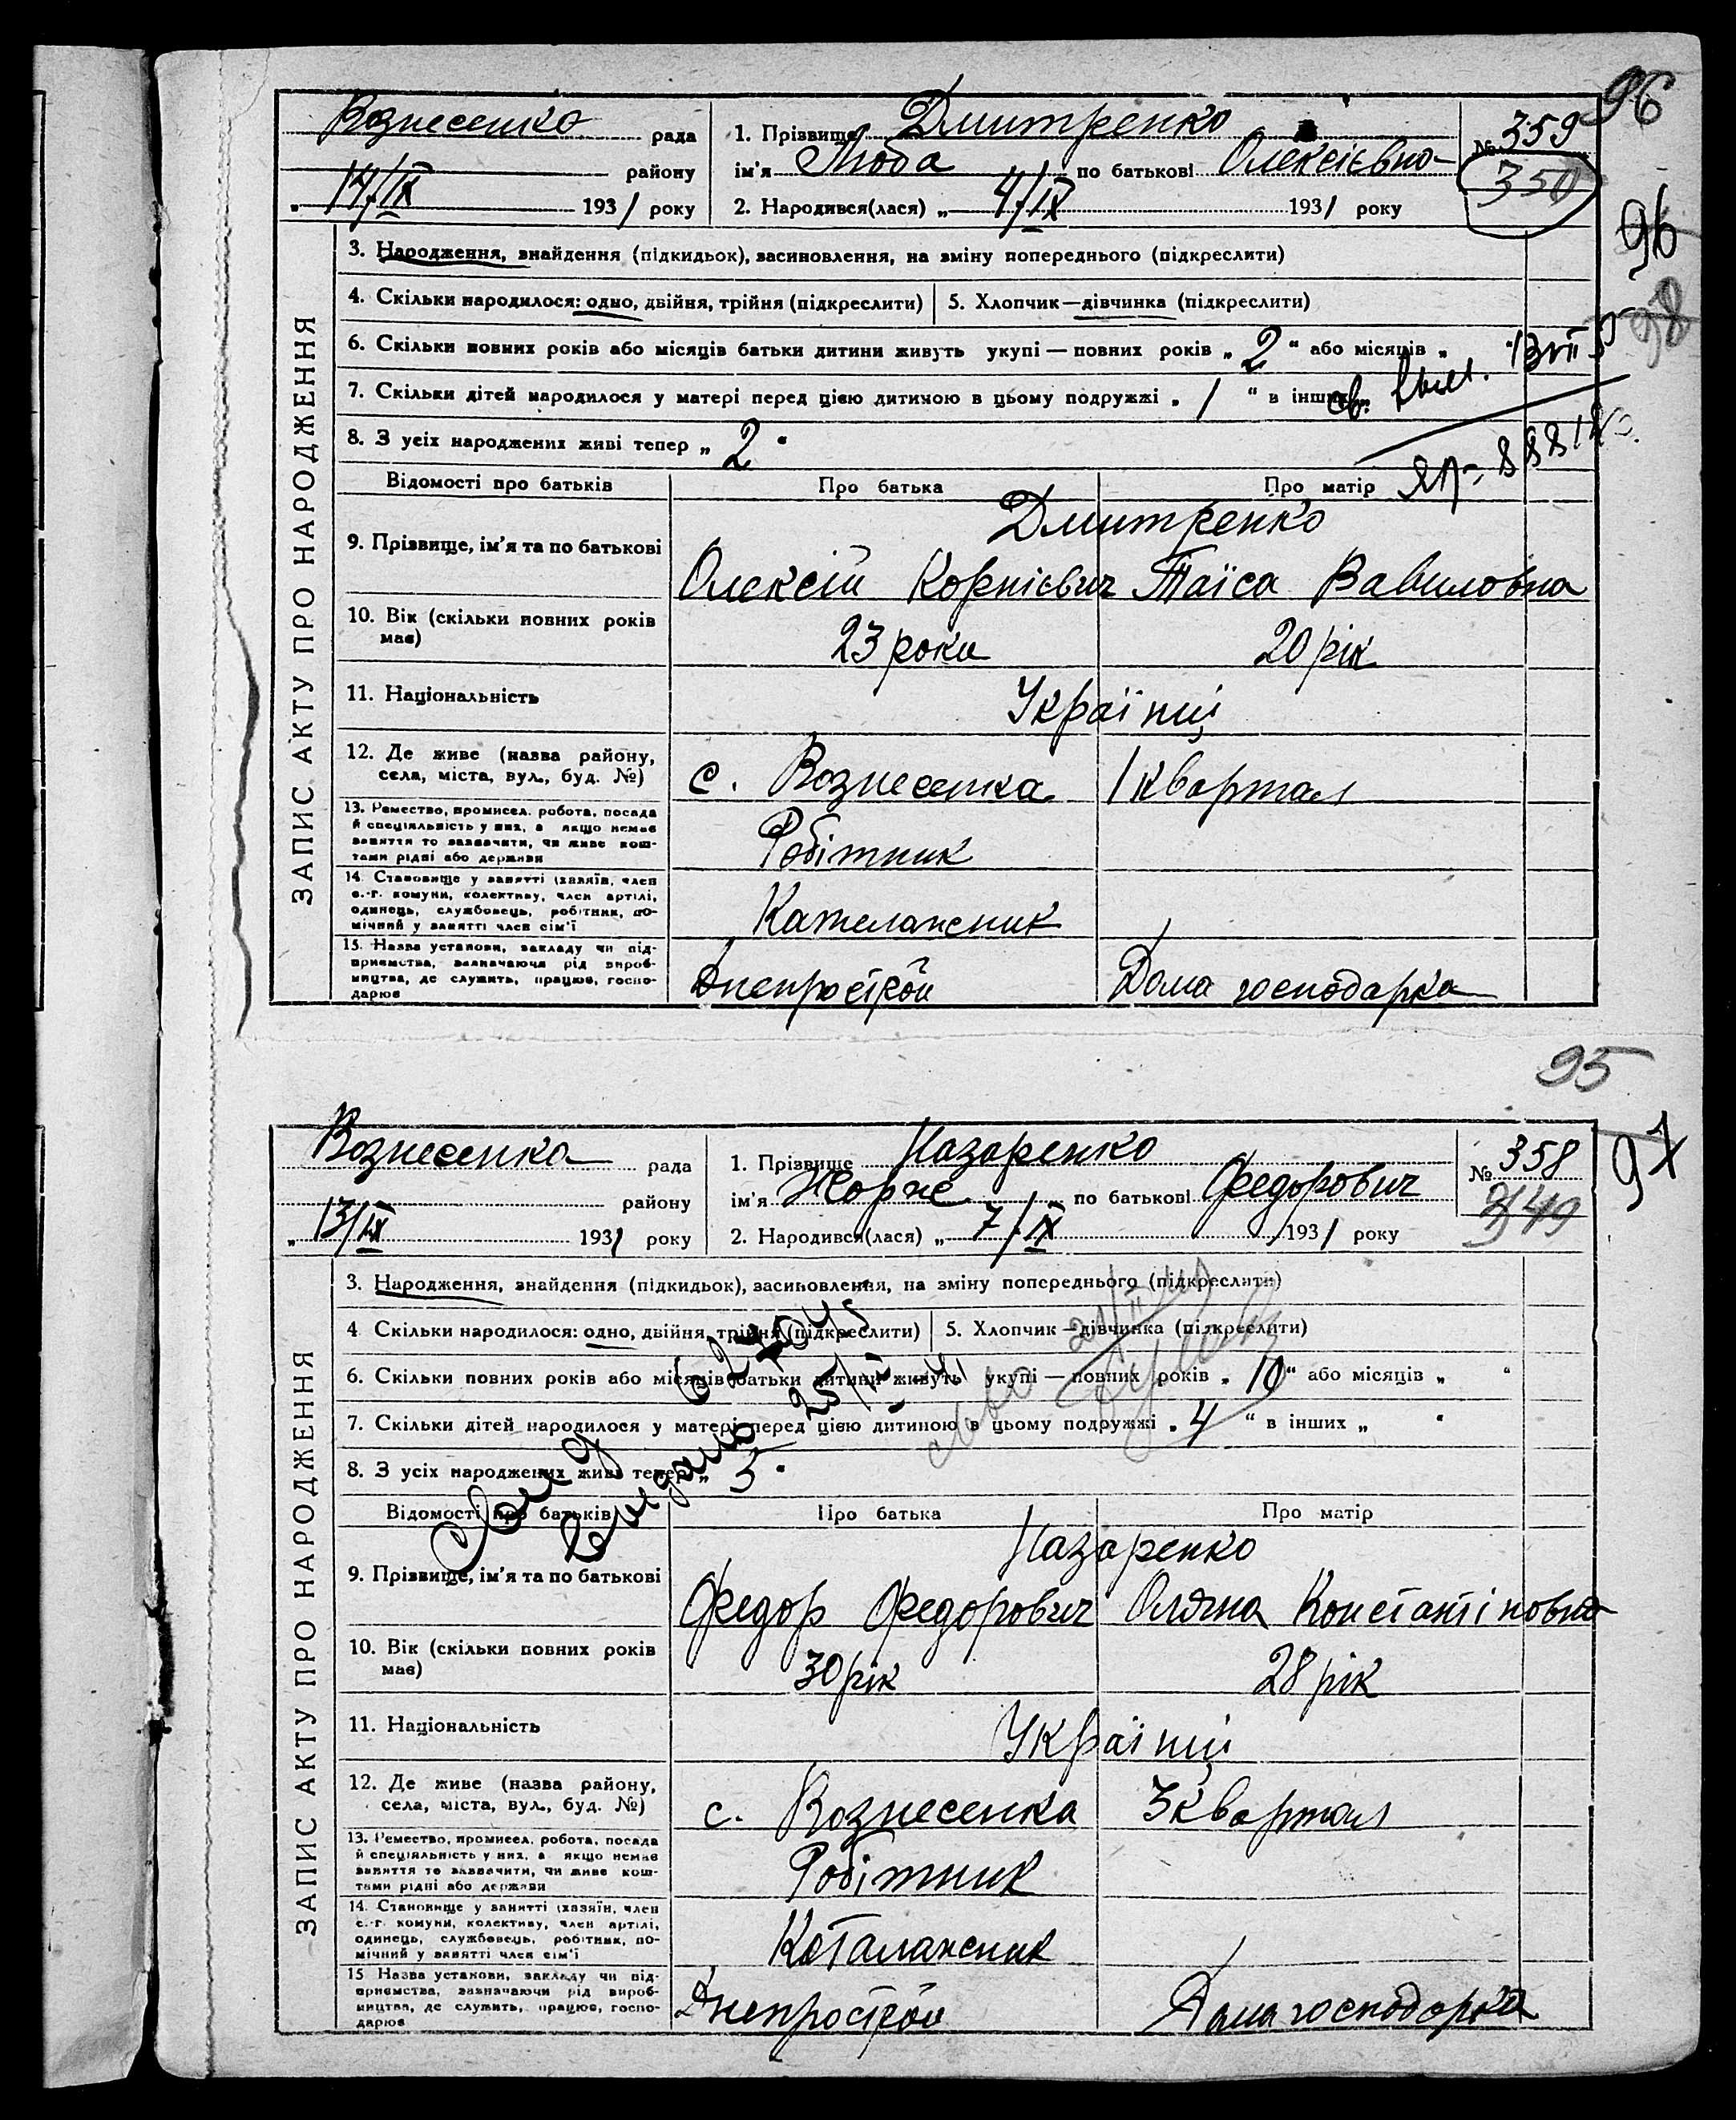 96
Вознесенка рада
району
„ 14/IX 1931 року
1. Прізвище Дмитренко
ім'я Люба по батькові Олексієвна
2. Народився(лася) „ 4/IX 1931 року
№ 359
350
96
98
ЗАПИС АКТУ ПРО НАРОДЖЕННЯ
3. Народження, знайдення (підкидьок), засиновлення, на зміну попереднього (підкреслити)
4. Скільки народилося: одно, двійня, трійня (підкреслити) 5. Хлопчик—дівчинка (підкреслити)
6. Скільки повних років або місяців батьки дитини живуть укупі — повних років „ 2 “ або місяців „
7. Скільки дітей народилося у матері перед цією дитиною в цьому подружжі „ 1 “ в інших
8. З усіх народжених живі тепер „ 2 “
Відомості про батьків Про батька Про матір
Дмитренко
9. Прізвище, ім'я та по батькові Олексій Корнієвич Таїса Вавиловна
10. Вік (скільки повних років має) 23 роки 20 рік
11. Національність Українці
12. Де живе (назва району, села, міста, вул., буд. №) с. Вознесенка 1 квартал
13. Ремество, промисел, робота, посада
й спеціяльність у них, а якщо немає
заняття то зазначити, чи живе кош-
тами рідні або держави
Робітник
14. Становище у занятті (хазяїн, член
с.-г. комуни, колективу, член артілі,
одинець, службовець, робітник, по-
мічний у занятті член сім'ї
Кателажник
15. Назва установи, закладу чи під-
приємства, зазначаючи рід вироб-
ництва, де служить, працює, госпо-
дарює
Днепрострой Дома господарка
95
97
Вознесенка рада
району
„ 13/IX 1931 року
1. Прізвище Назаренко
ім'я Жорж по батькові Федорович
2. Народився(лася) „ 7/IX 1931 року
№ 358
349
ЗАПИС АКТУ ПРО НАРОДЖЕННЯ
3. Народження, знайдення (підкидьок), засиновлення, на зміну попереднього (підкреслити)
4. Скільки народилося: одно, двійня, трійня (підкреслити) 5. Хлопчик—дівчинка (підкреслити)
6. Скільки повних років або місяців батьки дитини живуть укупі — повних років „ 10 “ або місяців „ “
7. Скільки дітей народилося у матері перед цією дитиною в цьому подружжі „ 4 “ в інших „ “
8. З усіх народжених живі тепер „ 5 “
Відомості про батьків Про батька Про матір
Назаренко
9. Прізвище, ім'я та по батькові Федор Федорович Оляна Константіновна
10. Вік (скільки повних років має) 30 рік 28 рік
11. Національність Українці
12. Де живе (назва району, села, міста, вул., буд. №) с. Вознесенка 3 квартал
13. Ремество, промисел, робота, посада
й спеціяльність у них, а якщо немає
заняття то зазначити, чи живе кош-
тами рідні або держави
Робітник
14. Становище у занятті (хазяїн, член
с.-г. комуни, колективу, член артілі,
одинець, службовець, робітник, по-
мічний у занятті член сім'ї
Коталажник
15 Назва установи, закладу чи під-
приємства, зазначаючи рід вироб-
ництва, де служить, працює, госпо-
дарює
Днепрострой Дома господарка